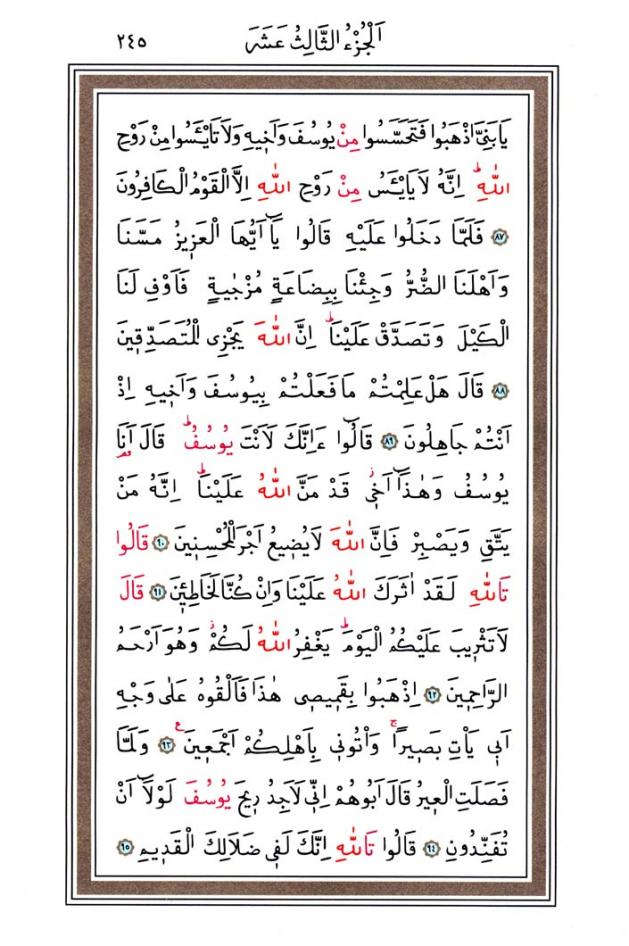 اَلْجُزْءُ الثَّالِثُ عَشَرَ ٢٤٥
يَا بَنِيَّ اذْهَبُوا فَتَحَسَّسُوا مِنْ يُوسُفَ وَاَخ۪يهِ وَلَا تَايْـَٔسُوا مِنْ رَوْحِ
اللّٰهِۜ اِنَّهُ لَا يَايْـَٔسُ مِنْ رَوْحِ اللّٰهِ اِلَّا الْقَوْمُ الْكَافِرُونَ
﴿٨٧﴾ فَلَمَّا دَخَلُوا عَلَيْهِ قَالُوا يَٓا اَيُّهَا الْعَز۪يزُ مَسَّنَا
وَاَهْلَنَا الضُّرُّ وَجِئْنَا بِبِضَاعَةٍ مُزْجٰيةٍ فَاَوْفِ لَنَا
الْكَيْلَ وَتَصَدَّقْ عَلَيْنَاۜ اِنَّ اللّٰهَ يَجْزِي الْمُتَصَدِّق۪ينَ
﴿٨٨﴾ قَالَ هَلْ عَلِمْتُمْ مَا فَعَلْتُمْ بِيُوسُفَ وَاَخ۪يهِ اِذْ
اَنْتُمْ جَاهِلُونَ ﴿٨٩﴾ قَالُٓوا ءَاِنَّكَ لَاَنْتَ يُوسُفُۜ قَالَ اَنَا۬
يُوسُفُ وَهٰذَٓا اَخ۪يۘ قَدْ مَنَّ اللّٰهُ عَلَيْنَاۜ اِنَّهُ مَنْ
يَتَّقِ وَيَصْبِرْ فَاِنَّ اللّٰهَ لَا يُض۪يعُ اَجْرَ الْمُحْسِن۪ينَ ﴿٩٠﴾ قَالُوا
تَاللّٰهِ لَقَدْ اٰثَرَكَ اللّٰهُ عَلَيْنَا وَاِنْ كُنَّا لَخَاطِـ۪ٔينَ ﴿٩١﴾ قَالَ
لَا تَثْر۪يبَ عَلَيْكُمُ الْيَوْمَۜ يَغْفِرُ اللّٰهُ لَكُمْۘ وَهُوَ اَرْحَمُ
الرَّاحِم۪ينَ ﴿٩٢﴾ اِذْهَبُوا بِقَم۪يص۪ي هٰذَا فَاَلْقُوهُ عَلٰى وَجْهِ
اَب۪ي يَاْتِ بَص۪يراًۚ وَأْتُون۪ي بِاَهْلِكُمْ اَجْمَع۪ينَ ﴿٩٣﴾ وَلَمَّا
فَصَلَتِ الْع۪يرُ قَالَ اَبُوهُمْ اِنّ۪ي لَاَجِدُ ر۪يحَ يُوسُفَ لَوْلَٓا اَنْ
تُفَنِّدُونِ ﴿٩٤﴾ قَالُوا تَاللّٰهِ اِنَّكَ لَف۪ي ضَلَالِكَ الْقَد۪يمِ ﴿٩٥﴾